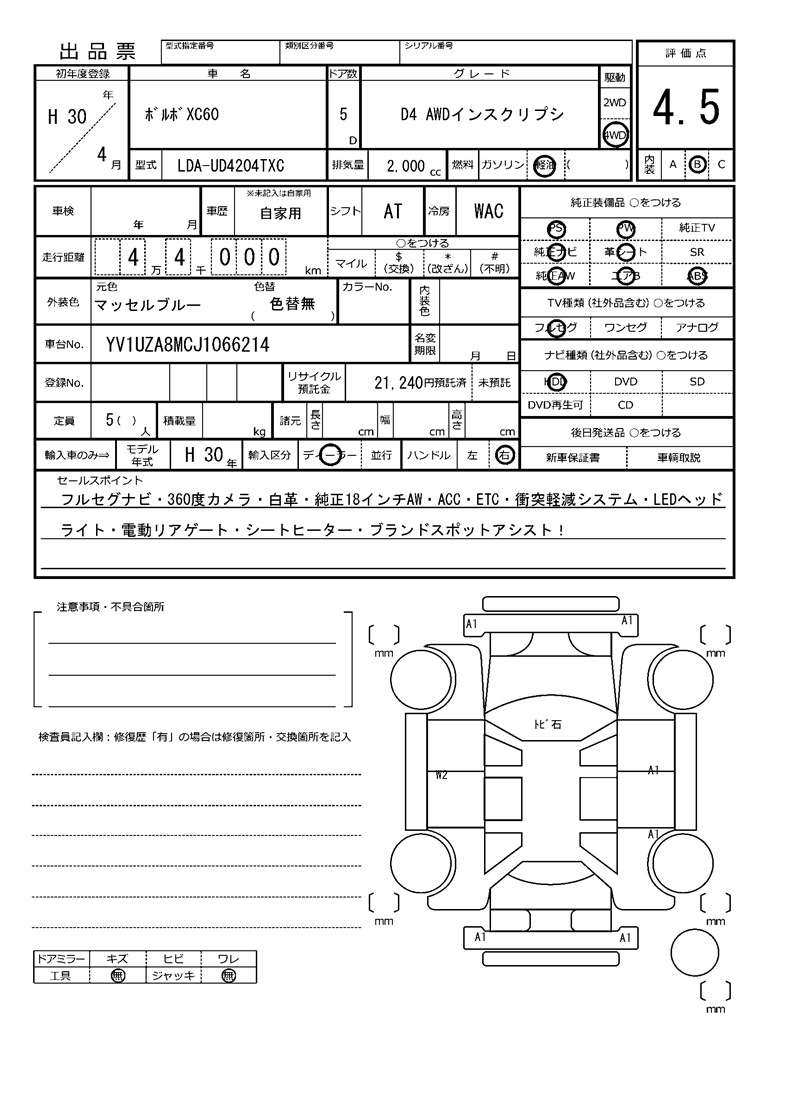 出品票
型式指定番号 類別区分番号 シリアル番号
評価点
4.5
初年度登録 車名 ドア数 グレード 駆動
H 30 年 4 月
ボルボXC60
5 D
D4 AWDインスクリプシ
2WD
4WD
型式 LDA-UD4204TXC 排気量 2,000 cc 燃料 ガソリン 軽油 ( )
内装 A B C
車検 年 月 車歴 ※未記入は自家用 自家用 シフト AT 冷房 WAC
走行距離 4 万 4 千 0 0 0 km
○をつける
マイル $(交換) *(改ざん) #(不明)
外装色 元色 マッセルブルー 色替 ( 色替無 ) カラーNo. 内装色
車台No. YV1UZA8MCJ1066214 名変期限 月 日
登録No. リサイクル預託金 21,240円預託済 未預託
定員 5( )人 積載量 kg 諸元 長さ cm 幅 cm 高さ cm
輸入車のみ⇒ モデル年式 H 30 年 輸入区分 ディーラー 並行 ハンドル 左 右
純正装備品 ○をつける
PS PW 純正TV
純正ナビ 革シート SR
純正AW エアB ABS
TV種類(社外品含む)○をつける
フルセグ ワンセグ アナログ
ナビ種類(社外品含む)○をつける
HDD DVD SD
DVD再生可 CD
後日発送品 ○をつける
新車保証書 車輌取説
セールスポイント
フルセグナビ・360度カメラ・白革・純正18インチAW・ACC・ETC・衝突軽減システム・LEDヘッド
ライト・電動リアゲート・シートヒーター・ブランドスポットアシスト!
注意事項・不具合箇所
検査員記入欄:修復歴「有」の場合は修復箇所・交換箇所を記入
A1 A1
mm mm
トビ石
W2 A1
A1
mm mm
A1 A1
mm
ドアミラー キズ ヒビ ワレ
工具 無 ジャッキ 無